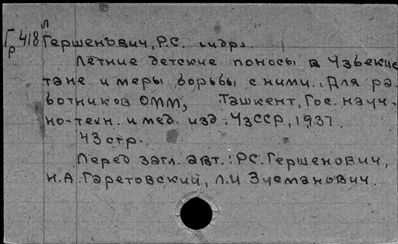 Гр418
л
Гершенович, Р.С. и др.
Летние детские поносы в Узбекис
тане и меры борьбы с ними. Для ра-
ботников ОММ, Ташкент, Гос. науч-
но-техн. и мед. изд. УзССР, 1937.
43 стр.
Перед загл. авт.: Р.С. Гершенович,
Н.А. Гаретовский, Л.И. Зусманович.